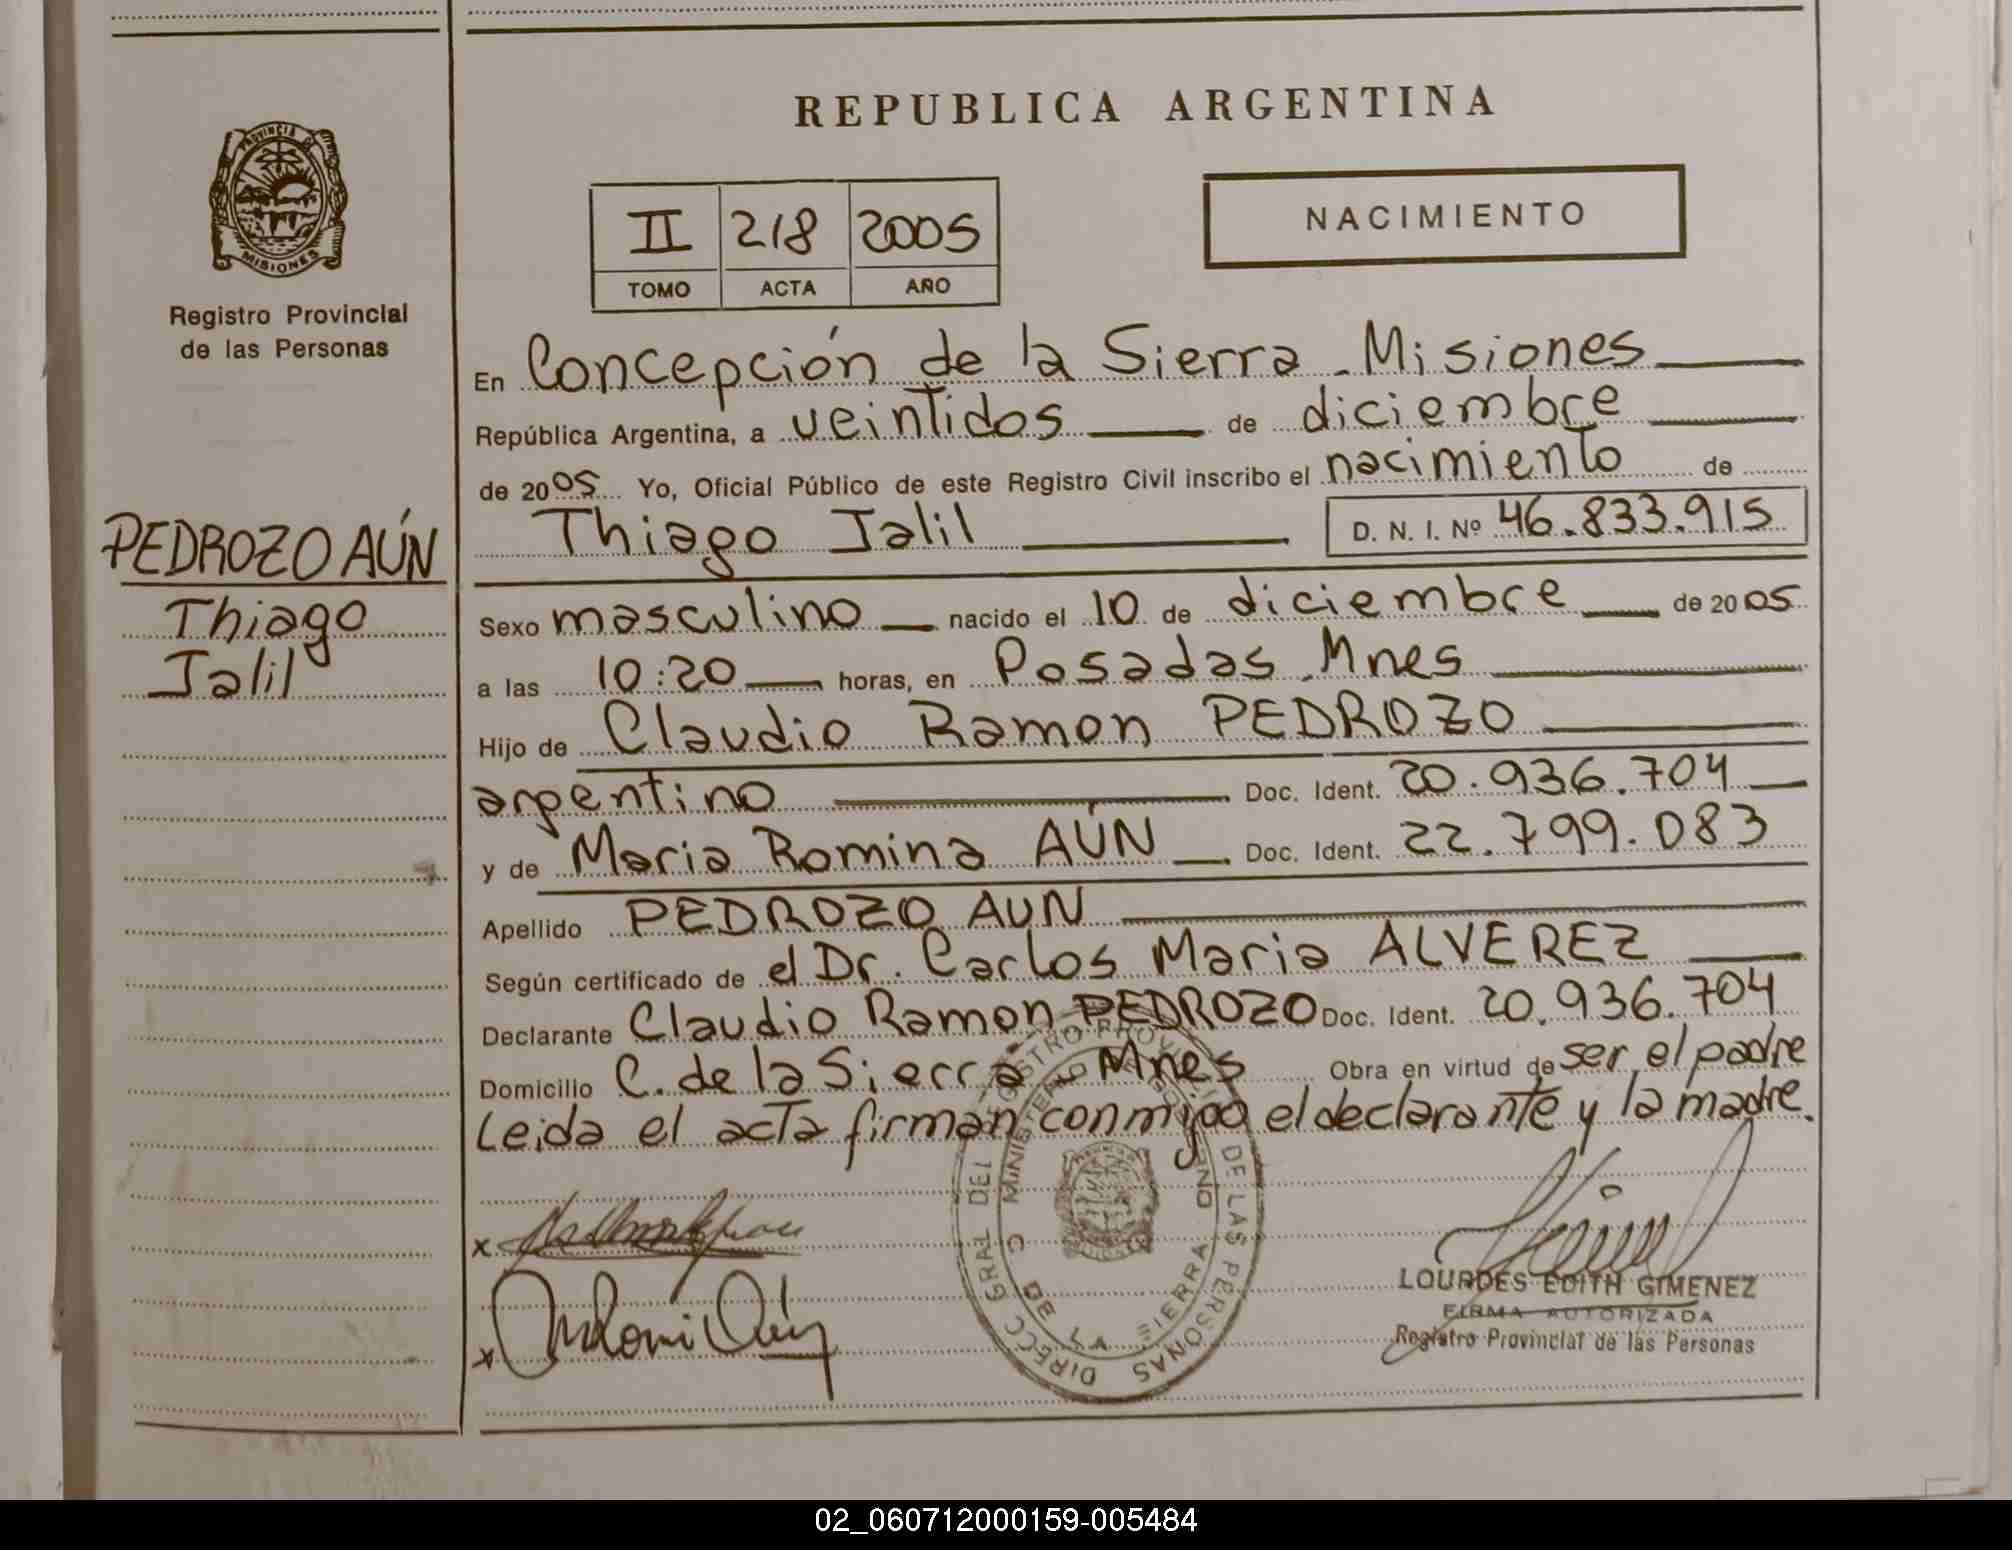 PROVINCIA DE
MISIONES
Registro Provincial
de las Personas
PEDROZO AÚN
Thiago
Jalil
REPUBLICA ARGENTINA
II 218 2005
TOMO ACTA AÑO
NACIMIENTO
En Concepción de la Sierra - Misiones
República Argentina, a veintidos de diciembre
de 2005 Yo, Oficial Público de este Registro Civil inscribo el nacimiento de
Thiago Jalil D. N. I. Nº 46.833.915
Sexo masculino nacido el 10 de diciembre de 2005
a las 10:20 horas, en Posadas - Mnes
Hijo de Claudio Ramon PEDROZO
argentino Doc. Ident. 20.936.704
y de Maria Romina AÚN Doc. Ident. 22.799.083
Apellido PEDROZO AUN
Según certificado de el Dr. Carlos Maria ALVEREZ
Declarante Claudio Ramon PEDROZO Doc. Ident. 20.936.704
Domicilio C. de la Sierra - Mnes Obra en virtud de ser el padre
Leida el acta firman conmigo el declarante y la madre.
DIRECC GRAL DEL REGISTRO PROVINCIAL DE LAS PERSONAS
C DE LA SIERRA
x
x
LOURDES EDITH GIMENEZ
FIRMA AUTORIZADA
Registro Provincial de las Personas
02_060712000159-005484